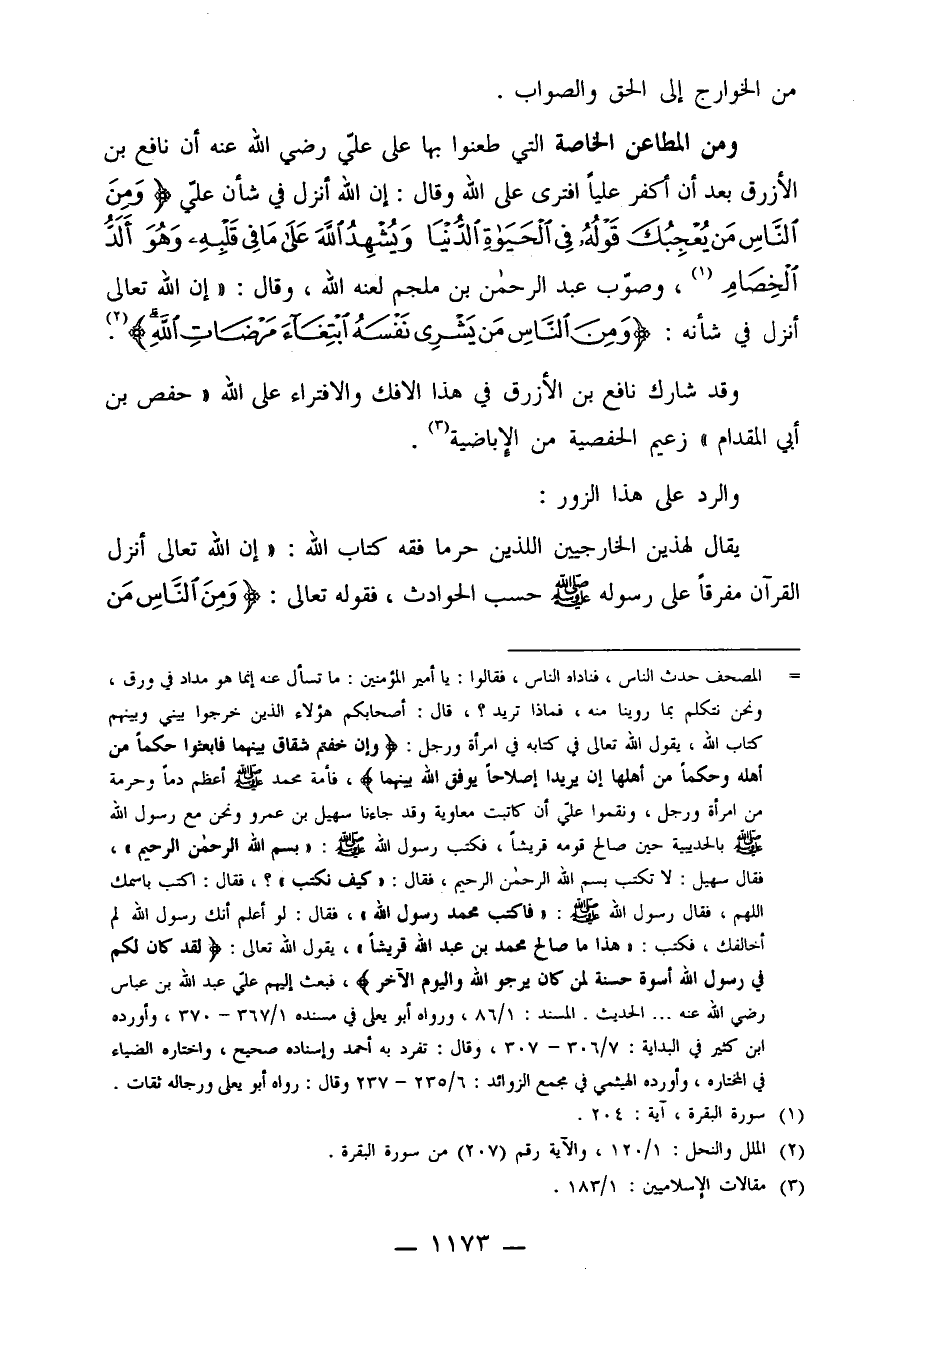 من الخوارج إلى الحق والصواب .
ومن المطاعن الخاصة التي طعنوا بها على عليّ رضي الله عنه أن نافع بن
الأزرق بعد أن أكفر علياً افترى على الله وقال : إن الله أنزل في شأن عليّ ﴿ وَمِنَ
ٱلنَّاسِ مَن يُعْجِبُكَ قَوْلُهُۥ فِى ٱلْحَيَوٰةِ ٱلدُّنْيَا وَيُشْهِدُ ٱللَّهَ عَلَىٰ مَا فِى قَلْبِهِۦ وَهُوَ أَلَدُّ
ٱلْخِصَامِ (١) ، وصوّب عبد الرحمٰن بن ملجم لعنه الله ، وقال : « إن الله تعالى
أنزل في شأنه : ﴿ وَمِنَ ٱلنَّاسِ مَن يَشْرِى نَفْسَهُ ٱبْتِغَآءَ مَرْضَاتِ ٱللَّهِ ﴾ (٢).
وقد شارك نافع بن الأزرق في هذا الافك والافتراء على الله « حفص بن
أبي المقدام » زعيم الحفصية من الإباضية(٣) .
والرد على هذا الزور :
يقال لهذين الخارجيين اللذين حرما فقه كتاب الله : « إن الله تعالى أنزل
القرآن مفرقاً على رسوله ﷺ حسب الحوادث ، فقوله تعالى : ﴿ وَمِنَ ٱلنَّاسِ مَن
= المصحف حدث الناس ، فناداه الناس ، فقالوا : يا أمير المؤمنين : ما تسأل عنه إنما هو مداد في ورق ،
ونحن نتكلم بما روينا منه ، فماذا تريد ؟ ، قال : أصحابكم هؤلاء الذين خرجوا بيني وبينهم
كتاب الله ، يقول الله تعالى في كتابه في امرأة ورجل : ﴿ وإن خفتم شقاق بينهما فابعثوا حكماً من
أهله وحكماً من أهلها إن يريدا إصلاحاً يوفق الله بينهما ﴾ ، فأمة محمد ﷺ أعظم دماً وحرمة
من امرأة ورجل ، ونقموا عليّ أن كاتبت معاوية وقد جاءنا سهيل بن عمرو ونحن مع رسول الله
ﷺ بالحديبية حين صالح قومه قريشاً ، فكتب رسول الله ﷺ : « بسم الله الرحمٰن الرحيم » ،
فقال سهيل : لا تكتب بسم الله الرحمٰن الرحيم ، فقال : « كيف نكتب » ؟ ، فقال : اكتب باسمك
اللهم ، فقال رسول الله ﷺ : « فاكتب محمد رسول الله » ، فقال : لو أعلم أنك رسول الله لم
أخالفك ، فكتب : « هذا ما صالح محمد بن عبد الله قريشاً » ، يقول الله تعالى : ﴿ لقد كان لكم
في رسول الله أسوة حسنة لمن كان يرجو الله واليوم الآخر ﴾ ، فبعث إليهم عليّ عبد الله بن عباس
رضي الله عنه ... الحديث . المسند : ٨٦/١ ، ورواه أبو يعلى في مسنده ٣٦٧/١ – ٣٧٠ ، وأورده
ابن كثير في البداية : ٣٠٦/٧ – ٣٠٧ ، وقال : تفرد به أحمد وإسناده صحيح ، واختاره الضياء
في المختاره ، وأورده الهيثمي في مجمع الزوائد : ٢٣٥/٦ – ٢٣٧ وقال : رواه أبو يعلى ورجاله ثقات .
(١) سورة البقرة ، آية : ٢٠٤ .
(٢) الملل والنحل : ١٢٠/١ ، والآية رقم (٢٠٧) من سورة البقرة .
(٣) مقالات الإسلاميين : ١٨٣/١ .
– ١١٧٣ –